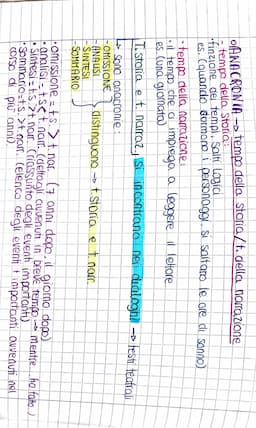 • ANACRONIA = tempo della storia/t. della narrazione
• tempo della storia:
finzione dei tempi, salti logici
es. (quando dormono i personaggi si saltano le ore di sonno)
• tempo della narrazione:
• il tempo che ci impiega a leggere il lettore
es. (una giornata)
T. storia e t. narraz. si incontrano nei dialoghi → testi teatrali
↳ sono anacronie:
- OMISSIONE
- ANALISI
- SINTESI
- SOMMARIO
distinguono → t storia e t narr.
• omissione = t.s. > t nar. (7 anni dopo, il giorno dopo)
• analisi: t.s < t nar. (dettagli avvenuti in breve tempo → mentre, ha fatto,)
• sintesi = t.s. > t nar. (riassunto degli eventi importanti)
• Sommario = t.s. > t nar. (elenco degli eventi + importanti avvenuti nel
corso di più anni)